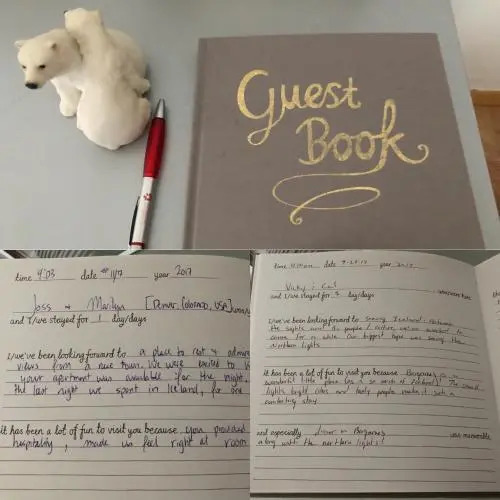 Guest
Book
time 9:03 date 11/7 year 2017
Joss & Marilyn [Denver, Colorado, USA]
and I/we stayed for 1 day/days
I/we've been looking forward to a place to rest &
views from a new town. We were excited to
your apartment was available for the night,
the last night we spent in Iceland, for
it has been a lot of fun to visit you because you provided
hospitality, made us feel right at
time date 9-27-17 year 2017
Vicky & Cal
and I/we stayed for day/days
I/we've been looking forward to seeing Iceland
the sights and people / culture, we've wanted to
come for a while. Our biggest hope was seeing the
Northern lights
it has been a lot of fun to visit you because Borgarnes is a
wonderful little place
lights, bright cities and lovely people make it such a
comforting stay
and especially dinner in Borgarnes was memorable
along with the northern lights!